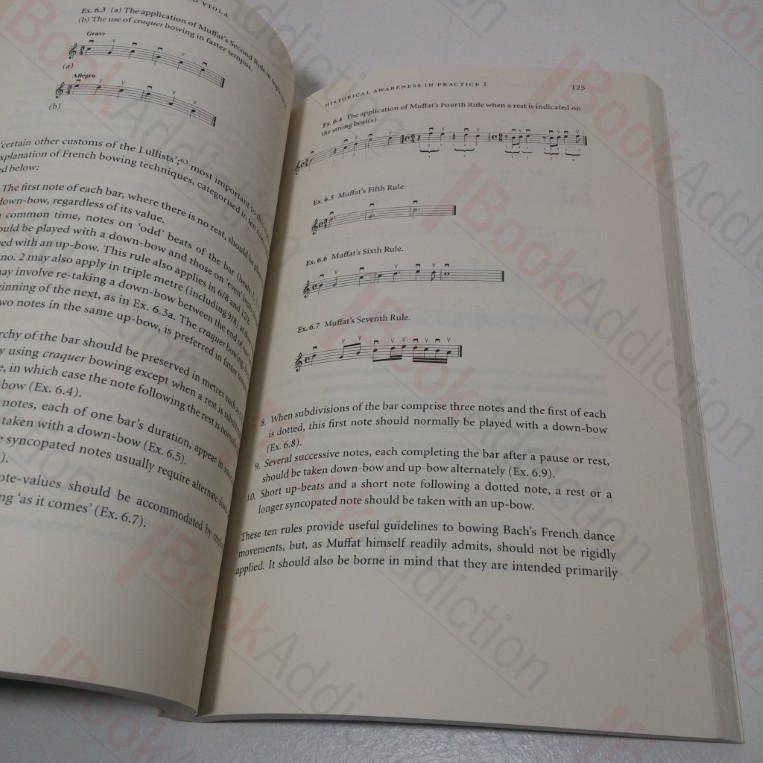 D VIOLA
Ex. 6.3 (a) The application of Muffat's Second Rule in
(b) The use of craquer bowing in faster tempos.
Grave
(a)
Allegro
(b)
'certain other customs of the Lullists';63 most important is
xplanation of French bowing techniques, categorised in ten
ed below:
The first note of each bar, where there is no rest, should be
down-bow, regardless of its value.
common time, notes on 'odd' beats of the bar
ould be played with a down-bow and those on 'even'
yed with an up-bow. This rule also applies in 6/8 and
no. 2 may also apply in triple metre (including 9/8)
ay involve re-taking a down-bow between the end of
ginning of the next, as in Ex. 6.3a. The craquer bowing
wo notes in the same up-bow, is preferred in faster
rchy of the bar should be preserved in metres
y using craquer bowing except when a rest is
e, in which case the note following the rest is
bow (Ex. 6.4).
notes, each of one bar's duration, appear in
taken with a down-bow (Ex. 6.5).
e syncopated notes usually require alternate
).
ote-values should be accommodated by
ng 'as it comes' (Ex. 6.7).
HISTORICAL AWARENESS IN PRACTICE I 125
Ex. 6.4 The application of Muffat's Fourth Rule when a rest is indicated on
the strong beat(s).
Ex. 6.5 Muffat's Fifth Rule.
Ex. 6.6 Muffat's Sixth Rule.
Ex. 6.7 Muffat's Seventh Rule.
8. When subdivisions of the bar comprise three notes and the first of each
is dotted, this first note should normally be played with a down-bow
(Ex. 6.8).
9. Several successive notes, each completing the bar after a pause or rest,
should be taken down-bow and up-bow alternately (Ex. 6.9).
10. Short up-beats and a short note following a dotted note, a rest or a
longer syncopated note should be taken with an up-bow.
These ten rules provide useful guidelines to bowing Bach's French dance
movements, but, as Muffat himself readily admits, should not be rigidly
applied. It should also be borne in mind that they are intended primarily
BookAddiction